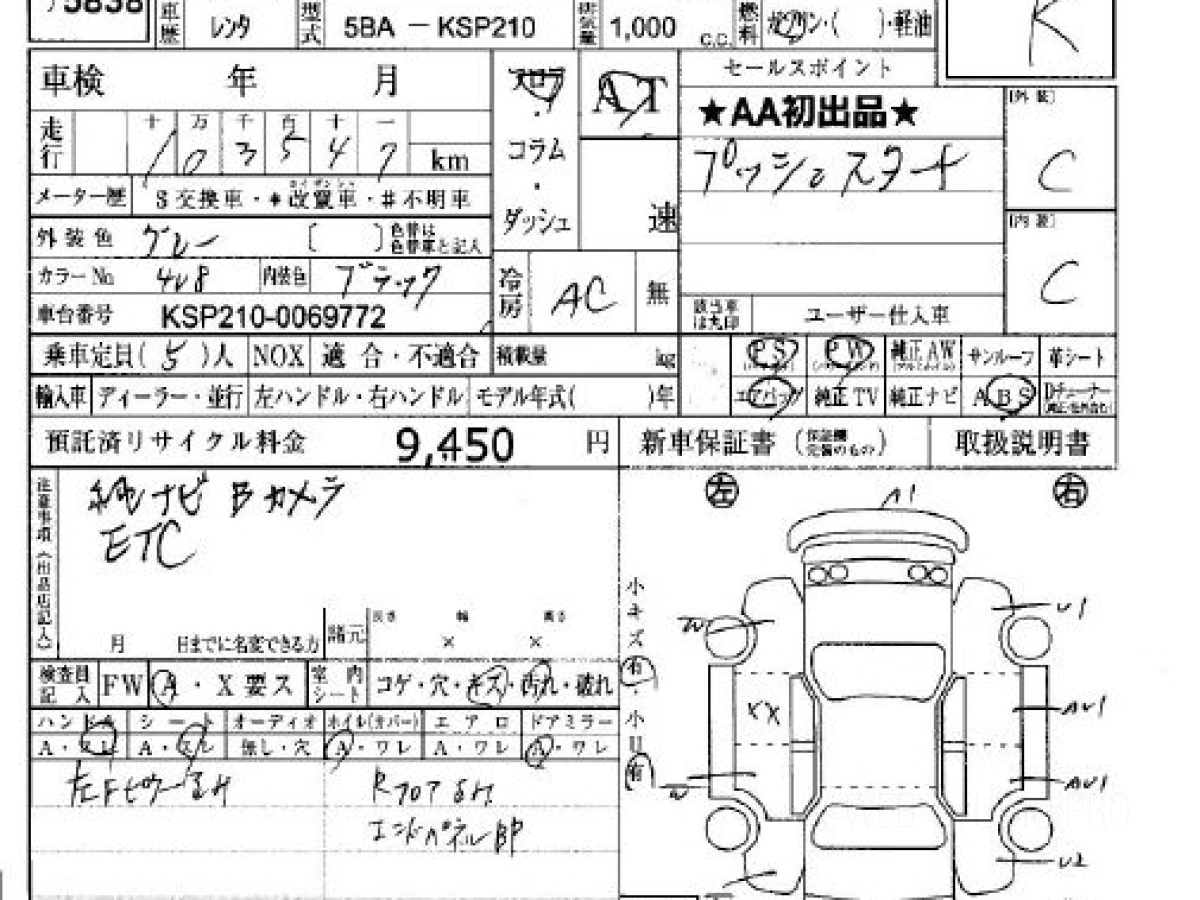 5838 車歴 レンタ 型式 5BA － KSP210 排気量 1,000 C.C. 燃料 ガソリン・( )・軽油
K
車検 年 月 フロア AT セールスポイント
・ ★AA初出品★ [外装]
走行 十 万 千 百 十 一 コラム プッシュスタート C
1 0 3 5 4 7 km ・
メーター歴 $交換車・*改竄車・#不明車 ダッシュ 速
外装色 グレー [ ] 色替は色替車と記入 [内装]
カラーNo 4V8 内装色 ブラック 冷房 AC 無 C
車台番号 KSP210-0069772 該当車は丸印 ユーザー仕入車
乗車定員( 5 )人 NOX 適合・不適合 積載量 kg PS PW 純正AW サンルーフ 革シート
輸入車 ディーラー・並行 左ハンドル・右ハンドル モデル年式( )年 エアバッグ 純正TV 純正ナビ ABS Dチューナー
預託済リサイクル料金 9,450 円 新車保証書 (保証機完備のもの) 取扱説明書
注意事項(出品店記入) 純ナビ Bカメラ 左 A1 右
ETC
小キズ 有・小U 有
W U1
月 日までに名変できる方 諸元 長さ × 幅 × 高さ
検査員記入 FW A・X要ス 室内シート コゲ・穴・キズ・汚れ・破れ
XX AU1
ハンドル シート オーディオ ホイル(カバー) エアロ ドアミラー
A・スレ A・スレ 無し・穴 A・ワレ A・ワレ A・ワレ
左Fピラー凹み Rフロア凹み W AU1
エンドパネルBP
U2